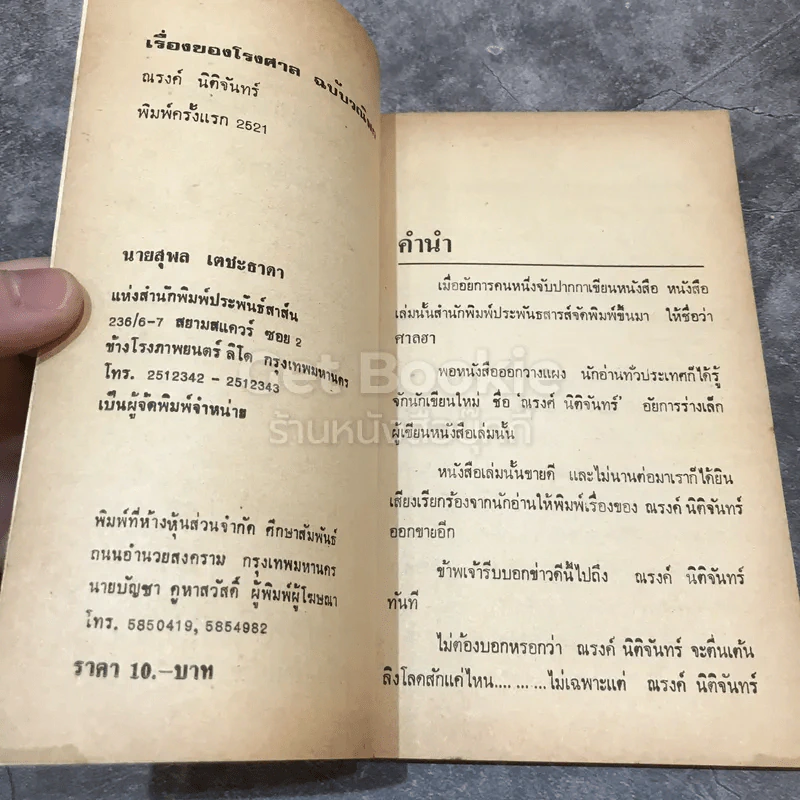 เรื่องของโรงศาล ฉบับวณิพก
ณรงค์ นิติจันทร์
พิมพ์ครั้งแรก 2521
นายสุพล เตชะธาดา
แห่งสำนักพิมพ์ประพันธ์สาส์น
236/6-7 สยามสแควร์ ซอย 2
ข้างโรงภาพยนตร์ ลิโด กรุงเทพมหานคร
โทร. 2512342 - 2512343
เป็นผู้จัดพิมพ์จำหน่าย
พิมพ์ที่ห้างหุ้นส่วนจำกัด ศึกษาสัมพันธ์
ถนนอำนวยสงคราม กรุงเทพมหานคร
นายบัญชา คูหาสวัสดิ์ ผู้พิมพ์ผู้โฆษณา
โทร. 5850419, 5854982
ราคา 10.-บาท
คำนำ
เมื่ออัยการคนหนึ่งจับปากกาเขียนหนังสือ หนังสือ
เล่มนั้นสำนักพิมพ์ประพันธสารส์จัดพิมพ์ขึ้นมา ให้ชื่อว่า
ศาลฮา
พอหนังสือออกวางแผง นักอ่านทั่วประเทศก็ได้รู้
จักนักเขียนใหม่ ชื่อ 'ณรงค์ นิติจันทร์' อัยการร่างเล็ก
ผู้เขียนหนังสือเล่มนั้น
หนังสือเล่มนั้นขายดี และไม่นานต่อมาเราก็ได้ยิน
เสียงเรียกร้องจากนักอ่านให้พิมพ์เรื่องของ ณรงค์ นิติจันทร์
ออกขายอีก
ข้าพเจ้ารีบบอกข่าวดีนี้ไปถึง ณรงค์ นิติจันทร์
ทันที
ไม่ต้องบอกหรอกว่า ณรงค์ นิติจันทร์ จะตื่นเต้น
ลิงโลดสักแค่ไหน.... ... ...ไม่เฉพาะแต่ ณรงค์ นิติจันทร์
Get Bookie
ร้านหนังสือบุ๊คกี้